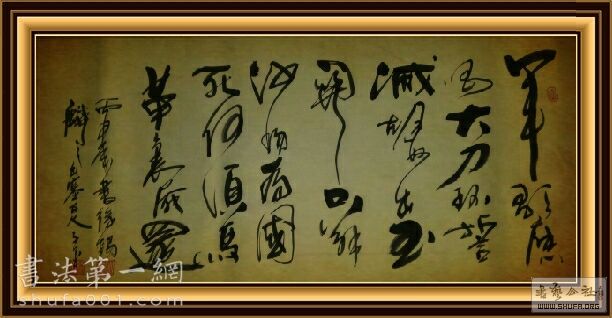 軍歌應
唱大刀环誓
滅胡奴出玉
關只解
沙場為國
死何須馬
革裹屍還
丙申書徐錫
麟之出塞
書法第一網
shufa001.com
書藝公社
WWW.SHUFA.ORG